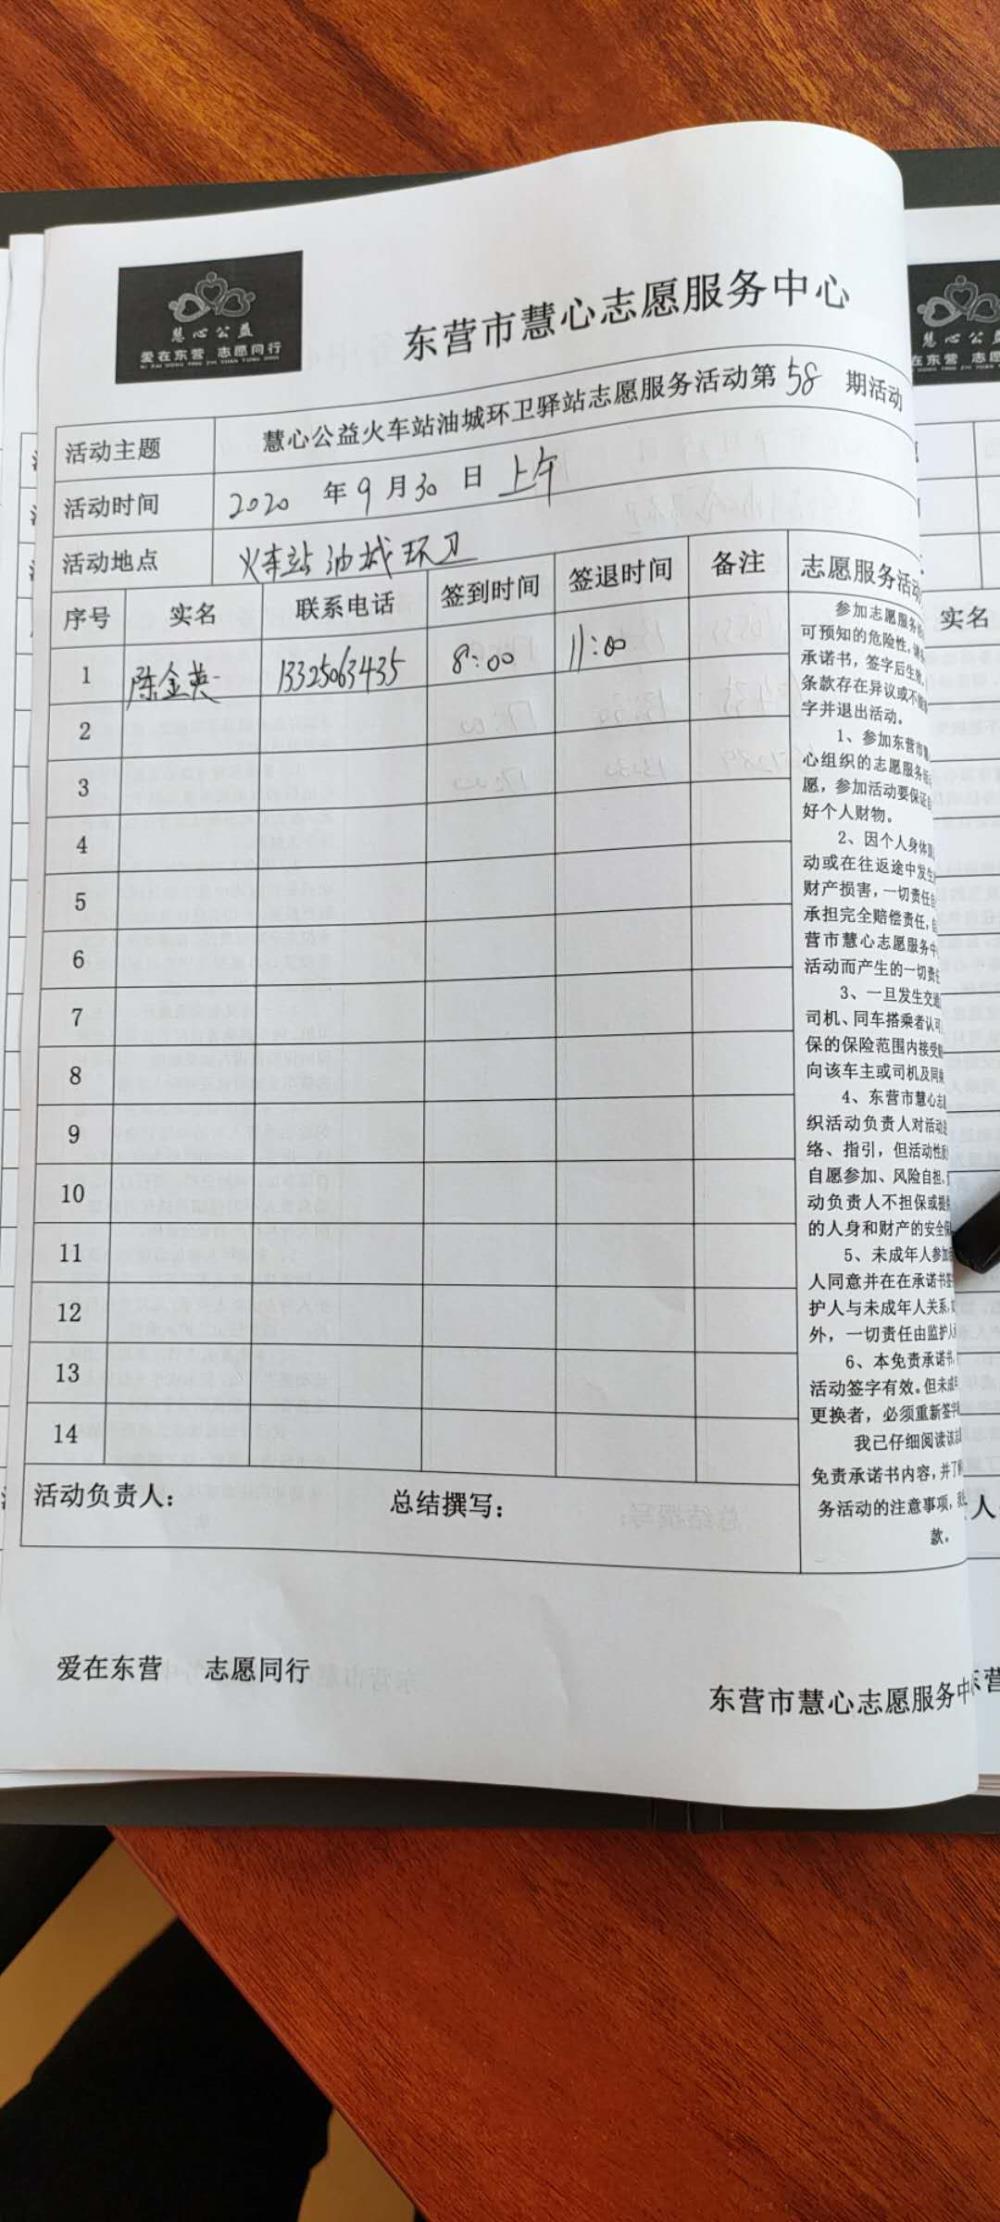 慧心公益
爱在东营 志愿同行
东营市慧心志愿服务中心
活动主题 慧心公益火车站油城环卫驿站志愿服务活动第58期活动
活动时间 2020年9月30日上午
活动地点 火车站油城环卫
序号 实名 联系电话 签到时间 签退时间 备注 志愿服务活动
1 陈金英 13325063435 8:00 11:00
2
3
4
5
6
7
8
9
10
11
12
13
14
参加志愿服务
可预知的危险性,
承诺书,签字后生效,
条款存在异议或不
字并退出活动。
1、参加东营市慧
心组织的志愿服务
愿,参加活动要保证
好个人财物。
2、因个人身体
动或在往返途中发生
财产损害,一切责任
承担完全赔偿责任,
营市慧心志愿服务中
活动而产生的一切责
3、一旦发生交通
司机、同车搭乘者认可
保的保险范围内接受
向该车主或司机及同
4、东营市慧心志
织活动负责人对活动
络、指引,但活动性
自愿参加、风险自担,
动负责人不担保或提
的人身和财产的安全
5、未成年人参加
人同意并在在承诺书签
护人与未成年人关系,
外,一切责任由监护人
6、本免责承诺书
活动签字有效。但未
更换者,必须重新签字
我已仔细阅读
免责承诺书内容,并了
务活动的注意事项,
款。
活动负责人: 总结撰写:
爱在东营 志愿同行
东营市慧心志愿服务中
实名